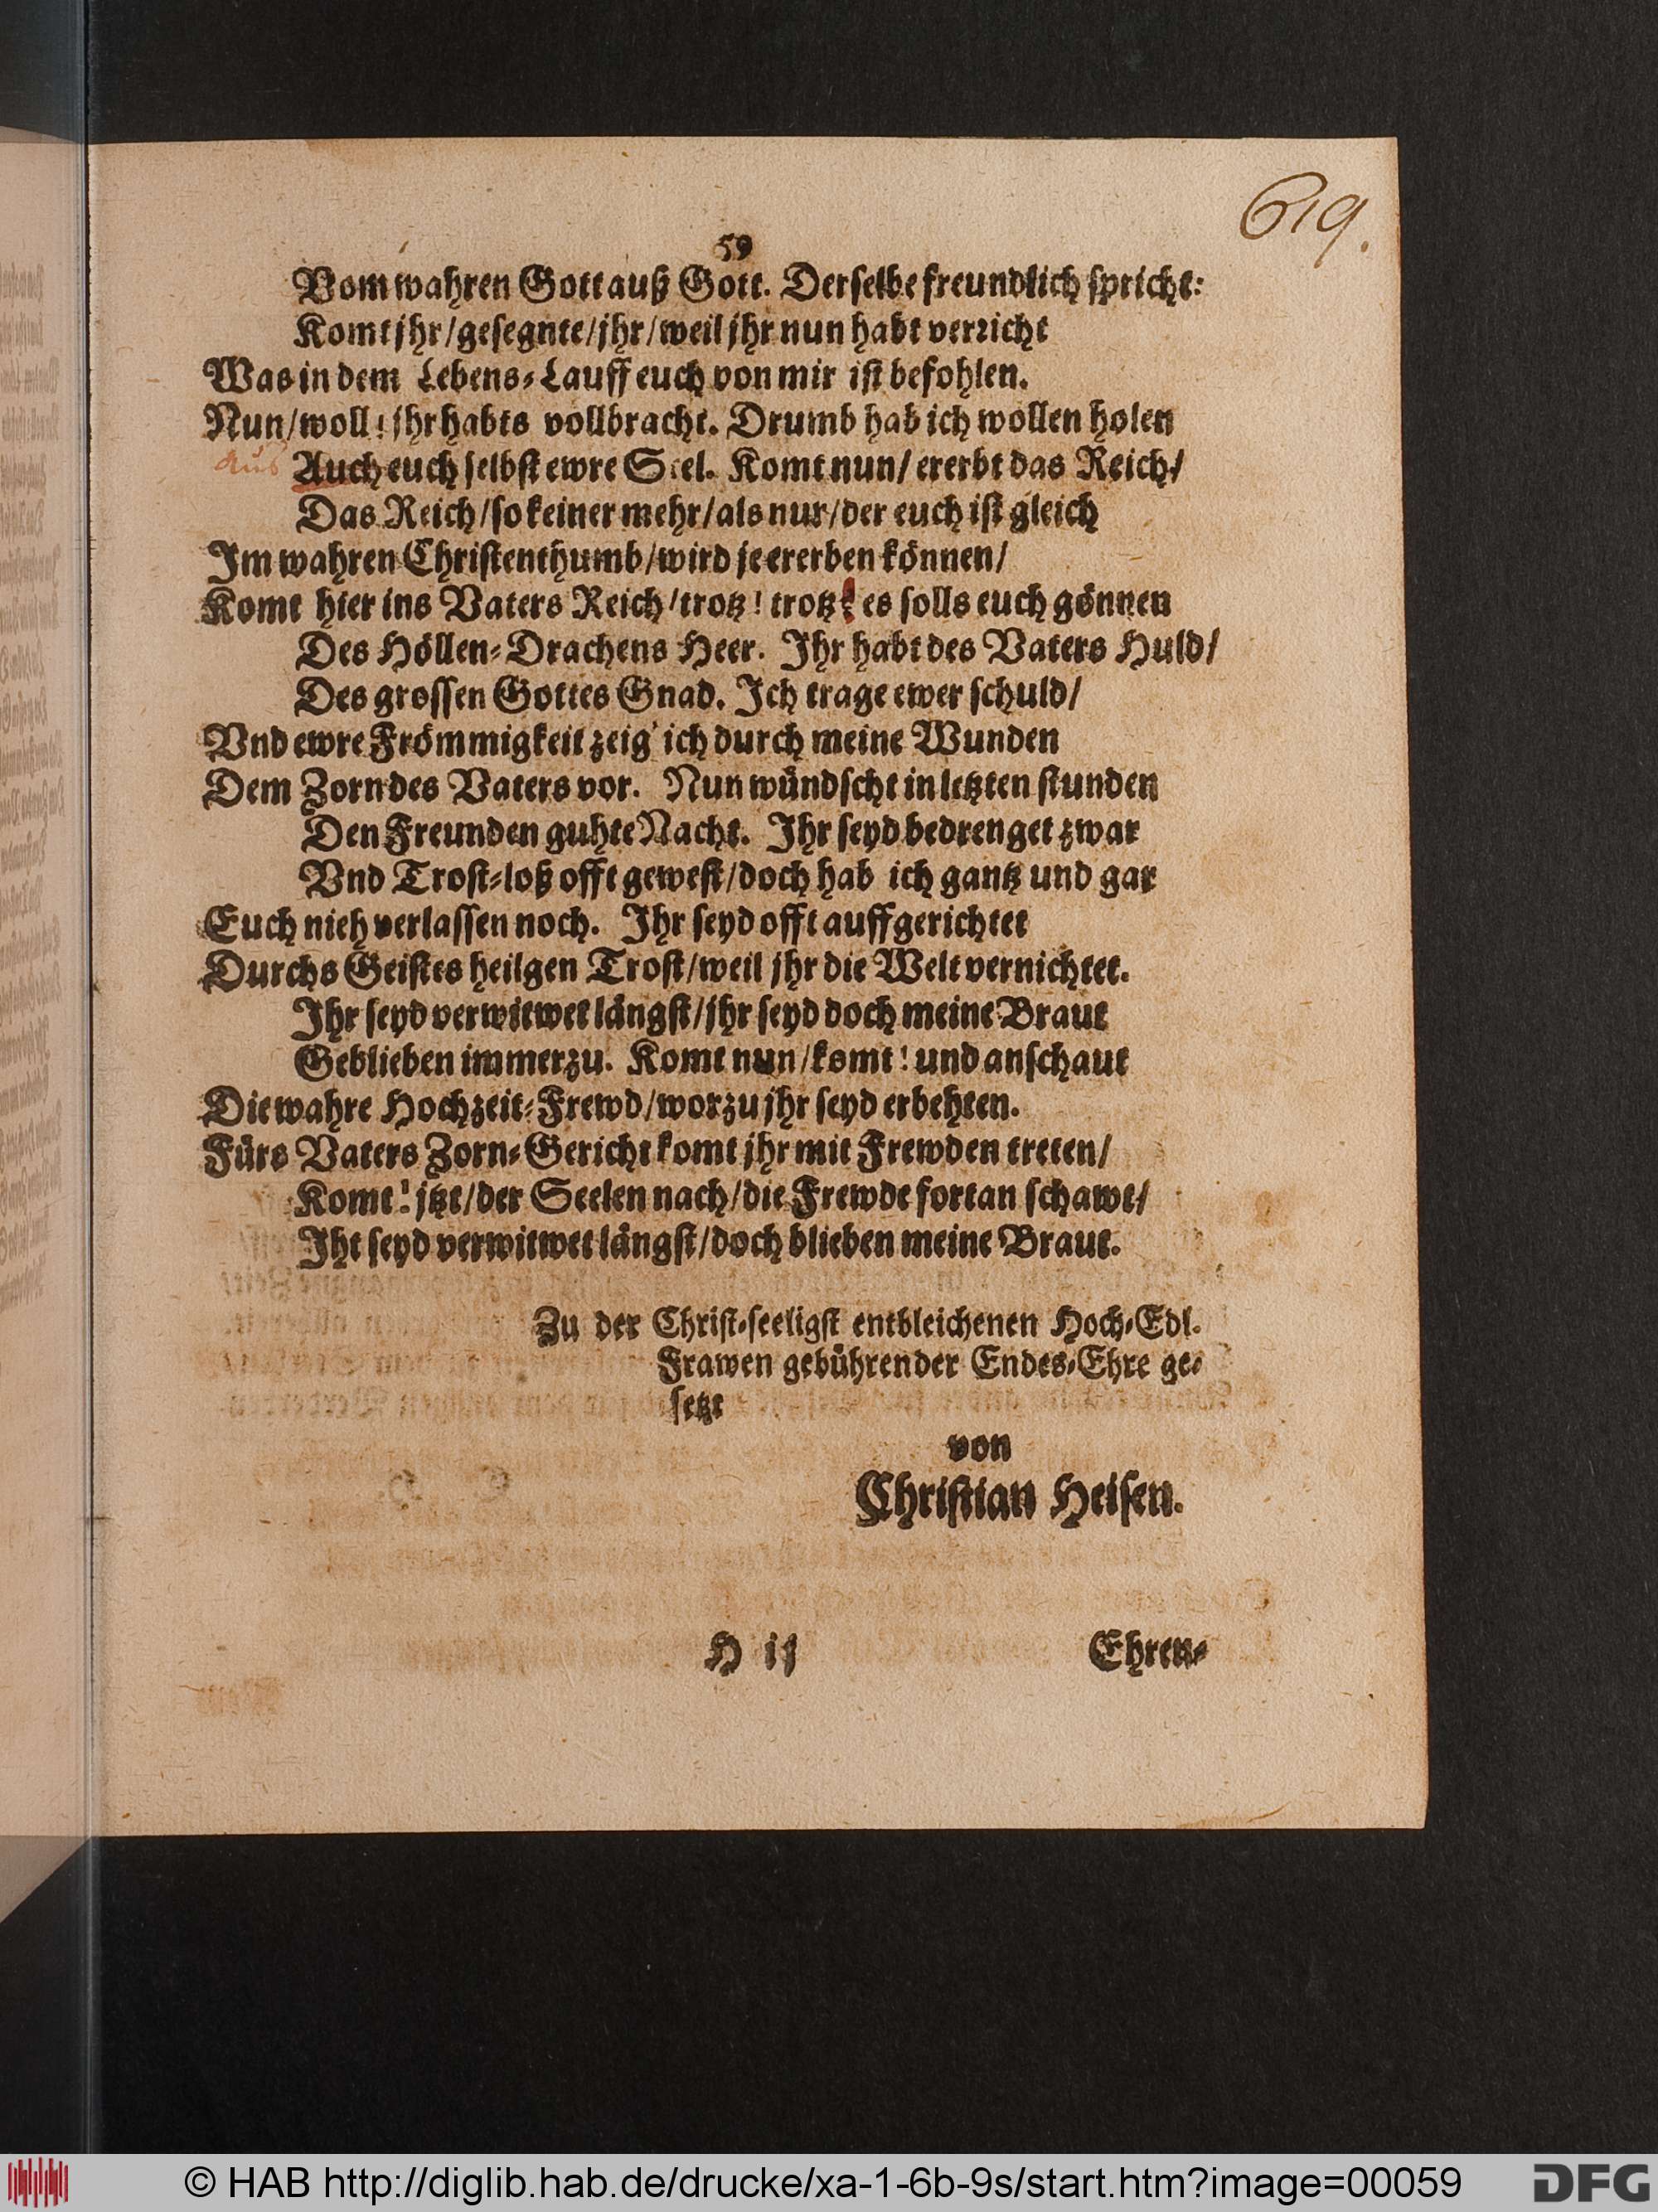 619.
59
Vom wahren Gott auß Gott. Derselbe freundlich spricht:
Komt jhr/gesegnte/jhr/weil jhr nun habt verricht
Was in dem Lebens-Lauff euch von mir ist befohlen.
Nun/woll! jhr habts vollbracht. Drumb hab ich wollen holen
aus Auch euch selbst ewre Seel. Komt nun/ ererbt das Reich/
Das Reich/so keiner mehr/als nur/der euch ist gleich
Im wahren Christenthumb/wird je ererben können/
Komt hier ins Vaters Reich/trotz! trotz! es solls euch gönnen
Des Höllen-Drachens Heer. Ihr habt des Vaters Huld/
Des grossen Gottes Gnad. Ich trage ewer schuld/
Vnd ewre Frömmigkeit zeig' ich durch meine Wunden
Dem Zorn des Vaters vor. Nun wündscht in letzten stunden
Den Freunden guhte Nacht. Ihr seyd bedrenget zwar
Vnd Trost-loß offt gewest/doch hab ich gantz und gar
Euch nieh verlassen noch. Ihr seyd offt auffgerichtet
Durchs Geistes heilgen Trost/weil jhr die Welt vernichtet.
Ihr seyd verwitwet längst/jhr seyd doch meine Braut
Geblieben immerzu. Komt nun/komt! und anschaut
Die wahre Hochzeit-Frewd/worzu jhr seyd erbehten.
Fürs Vaters Zorn-Gericht komt jhr mit Frewden treten/
Komt! jtzt/der Seelen nach/die Frewde fortan schawt/
Iht seyd verwitwet längst/doch blieben meine Braut.
Zu der Christ-seeligst entbleichenen Hoch-Edl.
Frawen gebührender Endes-Ehre ge-
setzt
von
Christian Heisen.
H ij
Ehren-
© HAB http://diglib.hab.de/drucke/xa-1-6b-9s/start.htm?image=00059
DFG